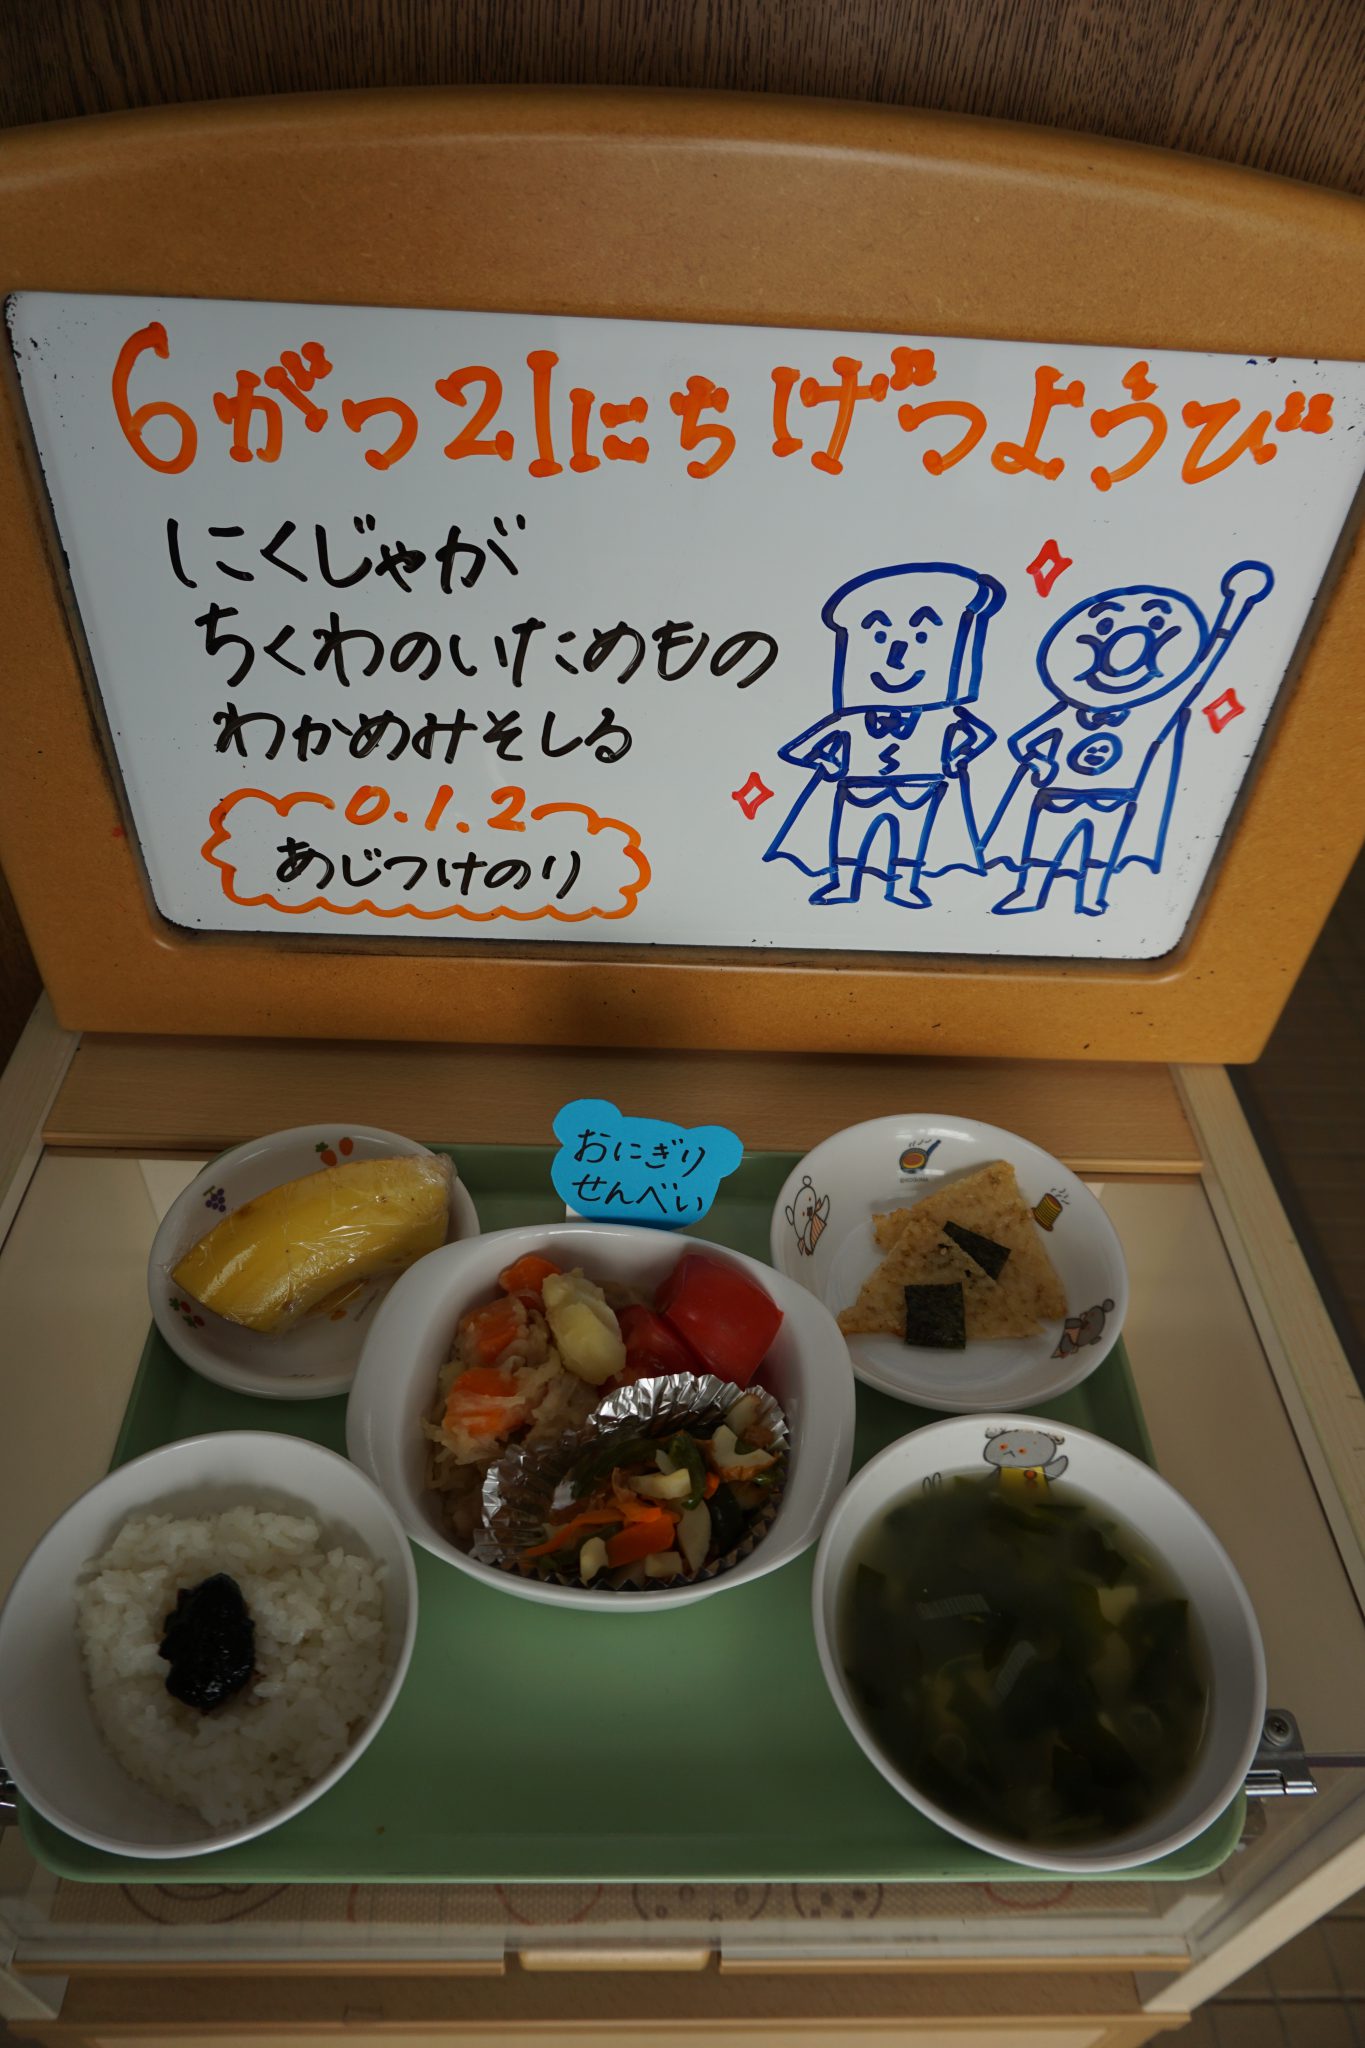 6がつ21にちげつようび
にくじゃが
ちくわのいためもの
わかめみそしる
0.1.2
あじつけのり
おにぎり
せんべい